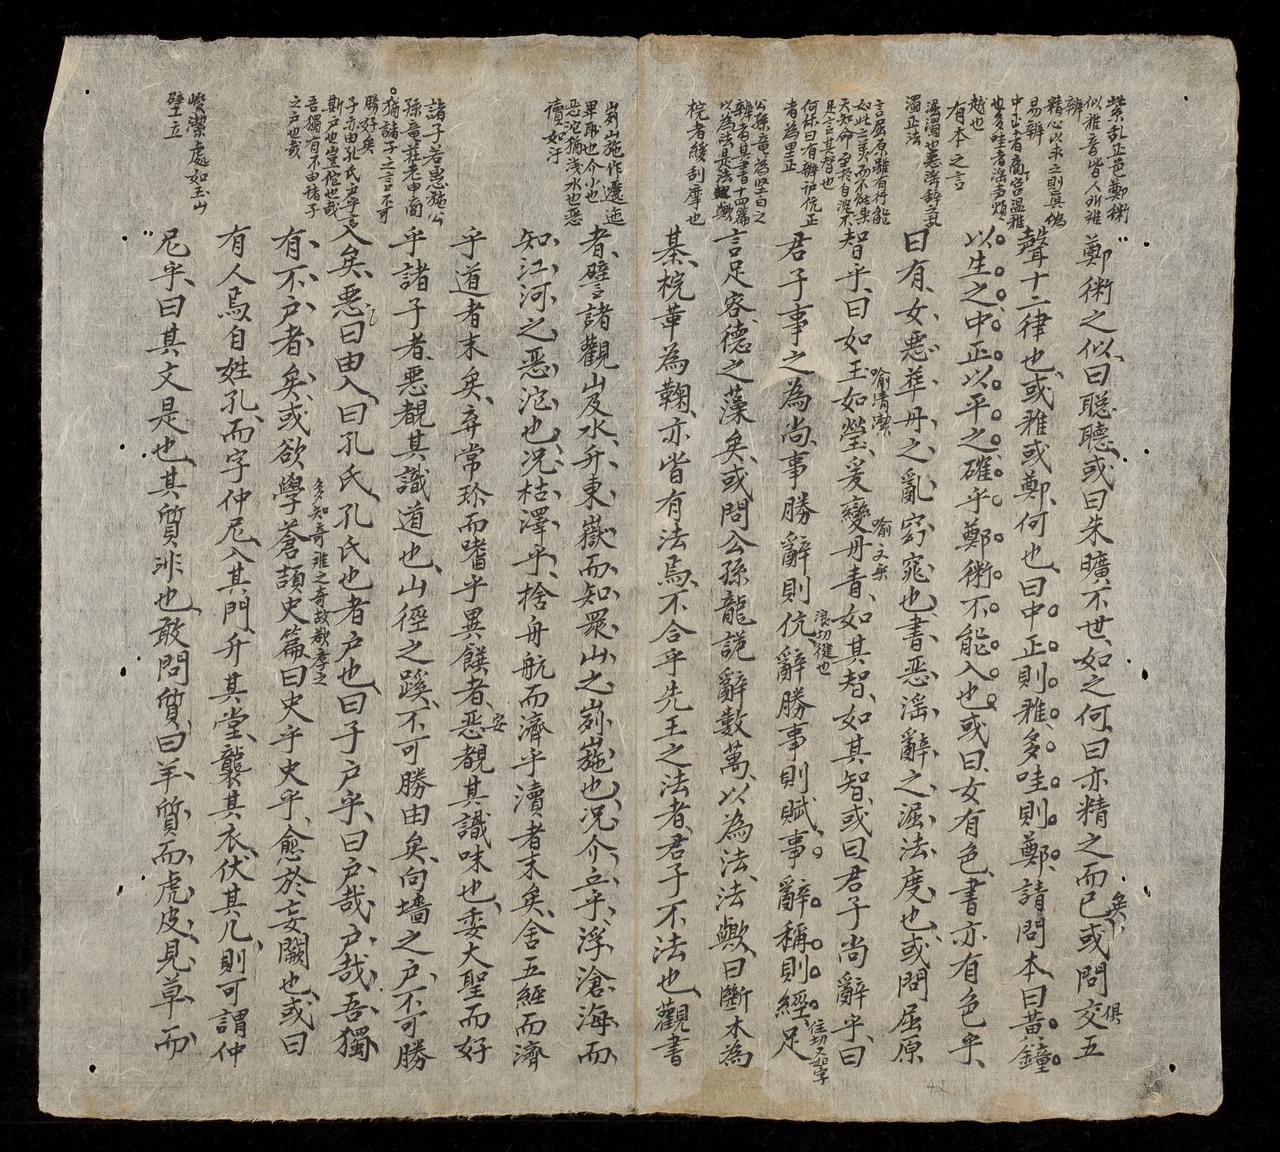 鄭衛之似曰聡聽或曰朱曠不世如之何曰亦精之而已矣或問交五
俱
聲十二律也或雅或鄭何也曰中正則雅多哇則鄭請問本曰黃鐘
以生之中正以平之確乎鄭衛不能入也或曰女有色書亦有色乎
曰有女惡華丹之亂窈窕也書惡淫辭之淈法度也或問屈原
智乎曰如玉如瑩爰變丹青如其智如其智或曰君子尚辭乎曰
喻清潔
喻文采
君子事之為尚事勝辭則伉辭勝事則賦事辭稱則經足
浪切健也
言足容德之藻矣或問公孫龍詭辭數萬以為法法歟曰斷木為
棊梡革為鞠亦皆有法焉不合乎先王之法者君子不法也觀書
者譬諸觀山及水升東嶽而知眾山之峛崺也况介丘乎浮滄海而
知江河之惡沱也况枯澤乎捨舟航而濟乎瀆者末矣舍五經而濟
乎道者末矣弃常珍而嗜乎異饌者惡覩其識味也委大聖而好
安
乎諸子者惡覩其識道也山徑之蹊不可勝由矣向墻之戶不可勝
入矣惡曰由入曰孔氏孔氏也者戶也曰子戶乎曰戶哉戶哉吾獨
有不戶者矣或欲學蒼頡史篇曰史乎史乎愈於妄闕也或曰
多知奇難之奇故欲學之
有人焉自姓孔而字仲尼入其門升其堂襲其衣伏其几則可謂仲
尼乎曰其文是也其質非也敢問質曰羊質而虎皮見草而
紫乱正色鄭衛
似雅音皆人所難
辨
精心以求之則真偽
易辨
中正者宮商溫雅
也多哇者淫声煩
越也
有本之言
濁正法
言屈原雖有行能
公孫龍為堅白之
辨者其書十四篇
以為法是法歟
梡者緩刮摩也
峛崺作邐迆
卑取也介小也
惡沱猶淺水也惡
讀如汙
諸子若惠施公
孫龍莊老申商
猶諸子之言不可
勝好矣
子亦由孔氏戶乎言
斯戶也豈他也哉
吾獨有不由諸子
之戶也哉
峻潔處如玉山
壁立
42